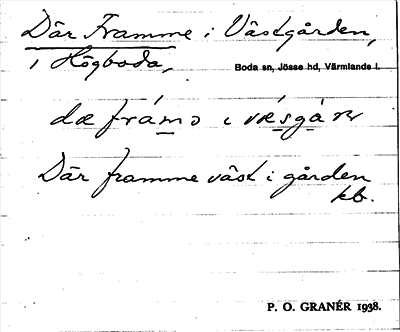 Där Framme i Västgården,
i Högboda,
Boda sn, Jösse hd, Värmlands l.
dæ framɔ i
Där framme väst i gården
kb.
P. O. GRANÉR 1938.